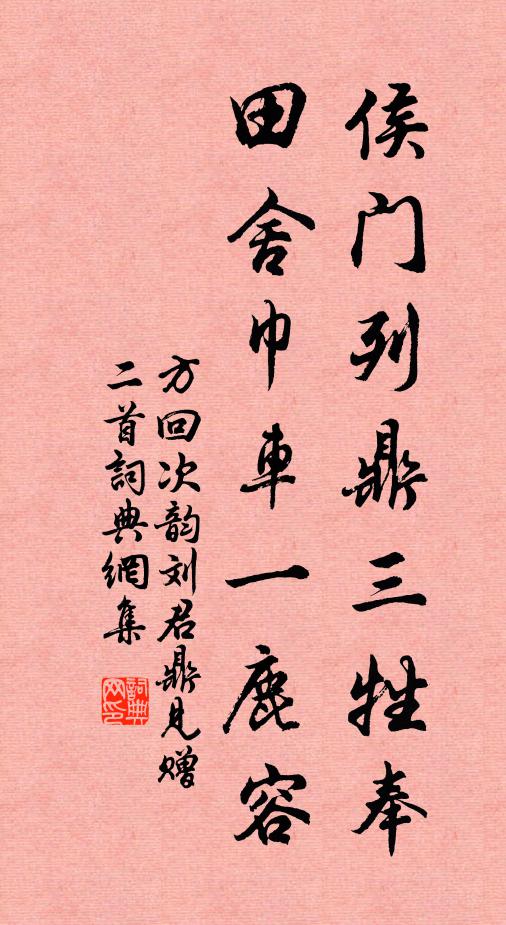 侯门列鼎三牲奉
田舍巾車一鹿容
方回次韵刘君鼎見赠
二首詞典網集
詞典
网印